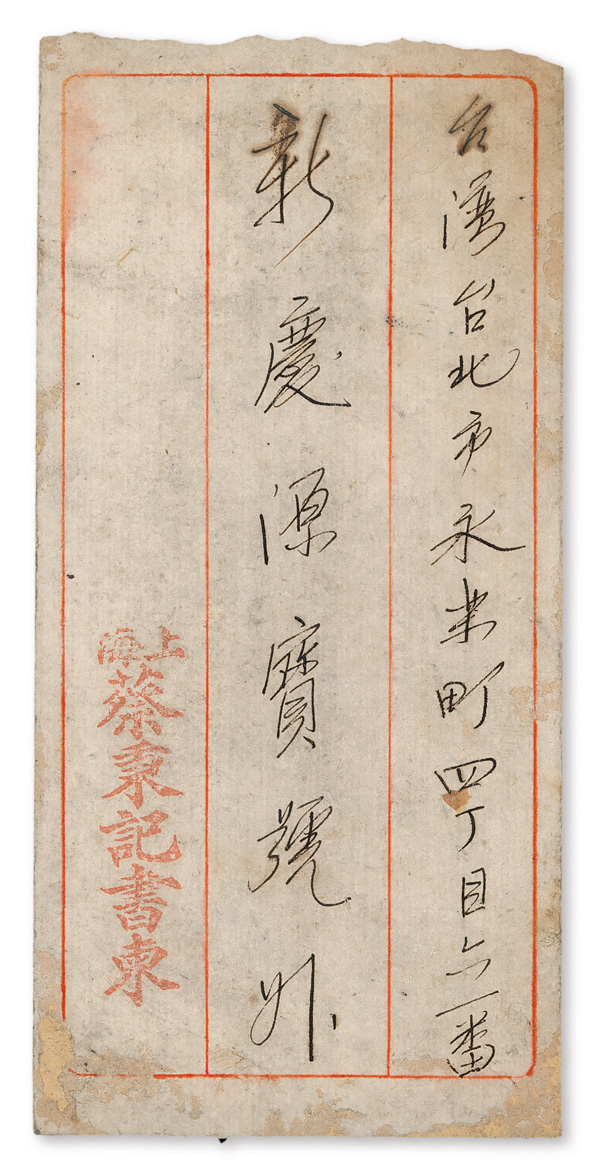 台灣台北市永楽町四丁目六一番
新慶源寶號升
上海
蔡秉記書柬